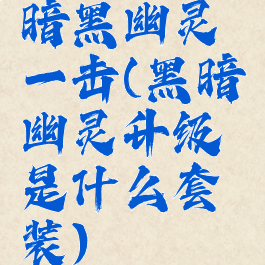 暗黑幽灵
一击(黑暗
幽灵升级
是什么套
装)